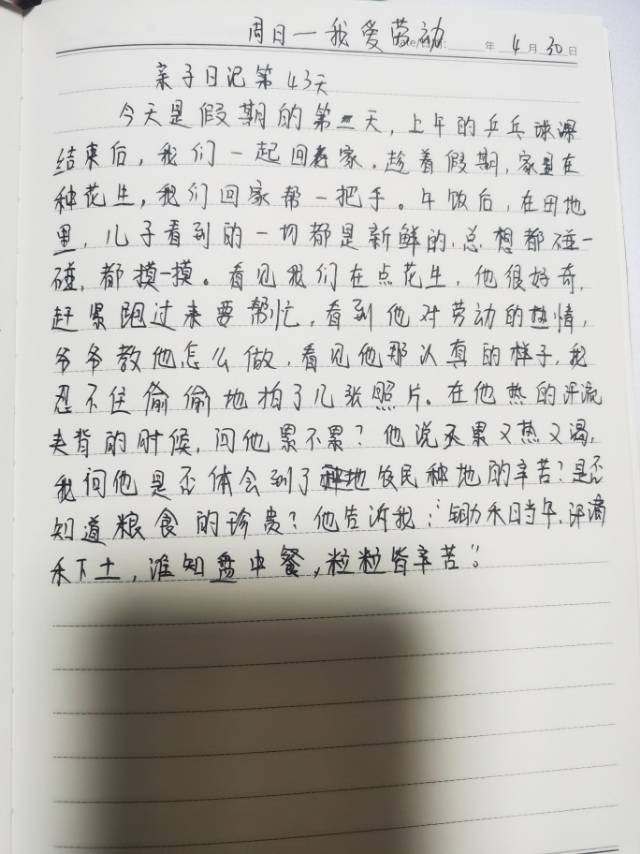 周日一我爱劳动 年 4月 30日
亲子日记第43天
今天是假期的第二天，上午的乒乓球课
结束后，我们一起回老家，趁着假期，家里在
种花生，我们回家帮一把手。午饭后，在田地
里，儿子看到的一切都是新鲜的，总想都碰一
碰，都摸一摸。看见我们在点花生，他很好奇，
赶紧跑过来要帮忙，看到他对劳动的热情，
爷爷教他怎么做，看见他那认真的样子，我
忍不住偷偷地拍了几张照片。在他热的汗流
夹背的时候，问他累不累？他说又累又热又渴，
我问他是否体会到了种地农民种地的辛苦？是否
知道粮食的珍贵？他告诉我：“锄禾日当午，汗滴
禾下土，谁知盘中餐，粒粒皆辛苦”。